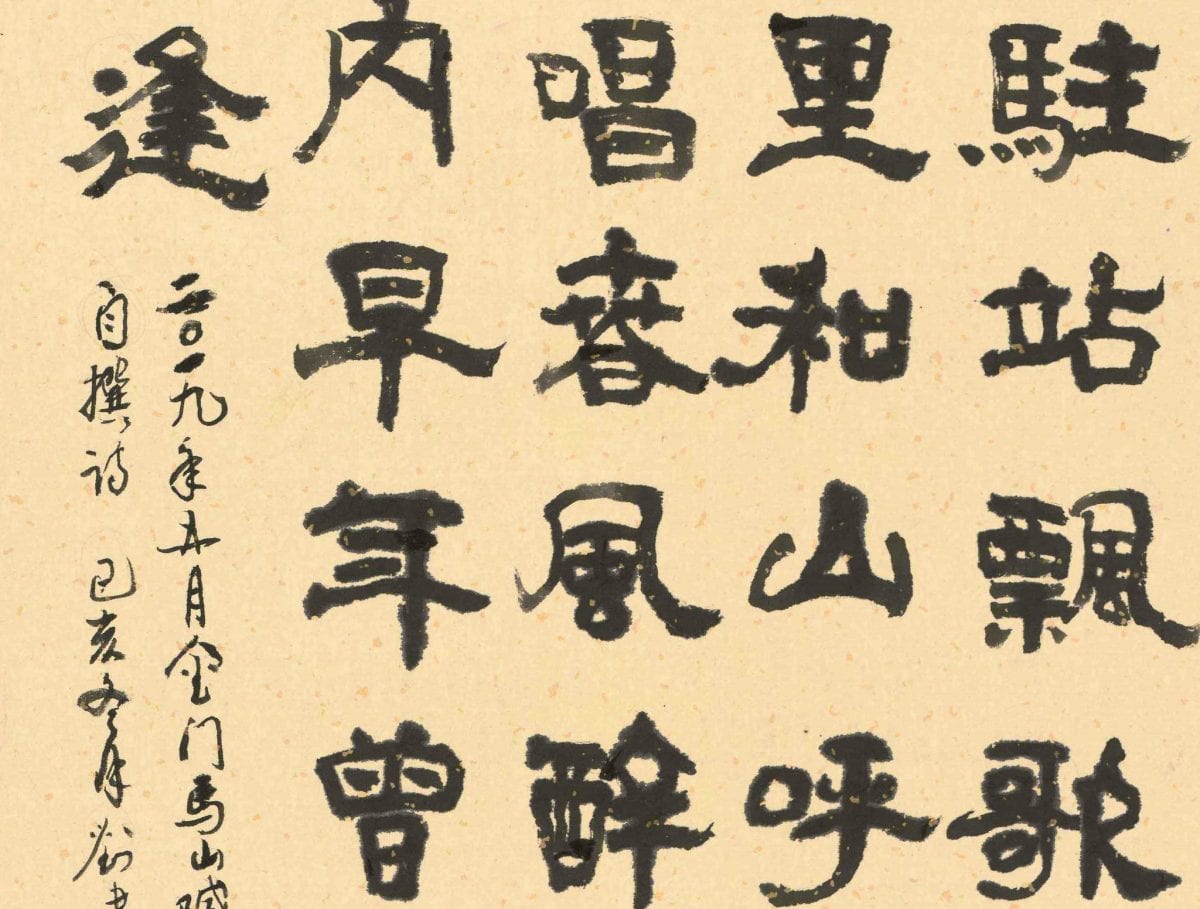 駐站飄歌
里和山呼
唱春風醉
内早年曾
逢
二〇一九年五月金门馬山
自撰诗 己亥冬月劉